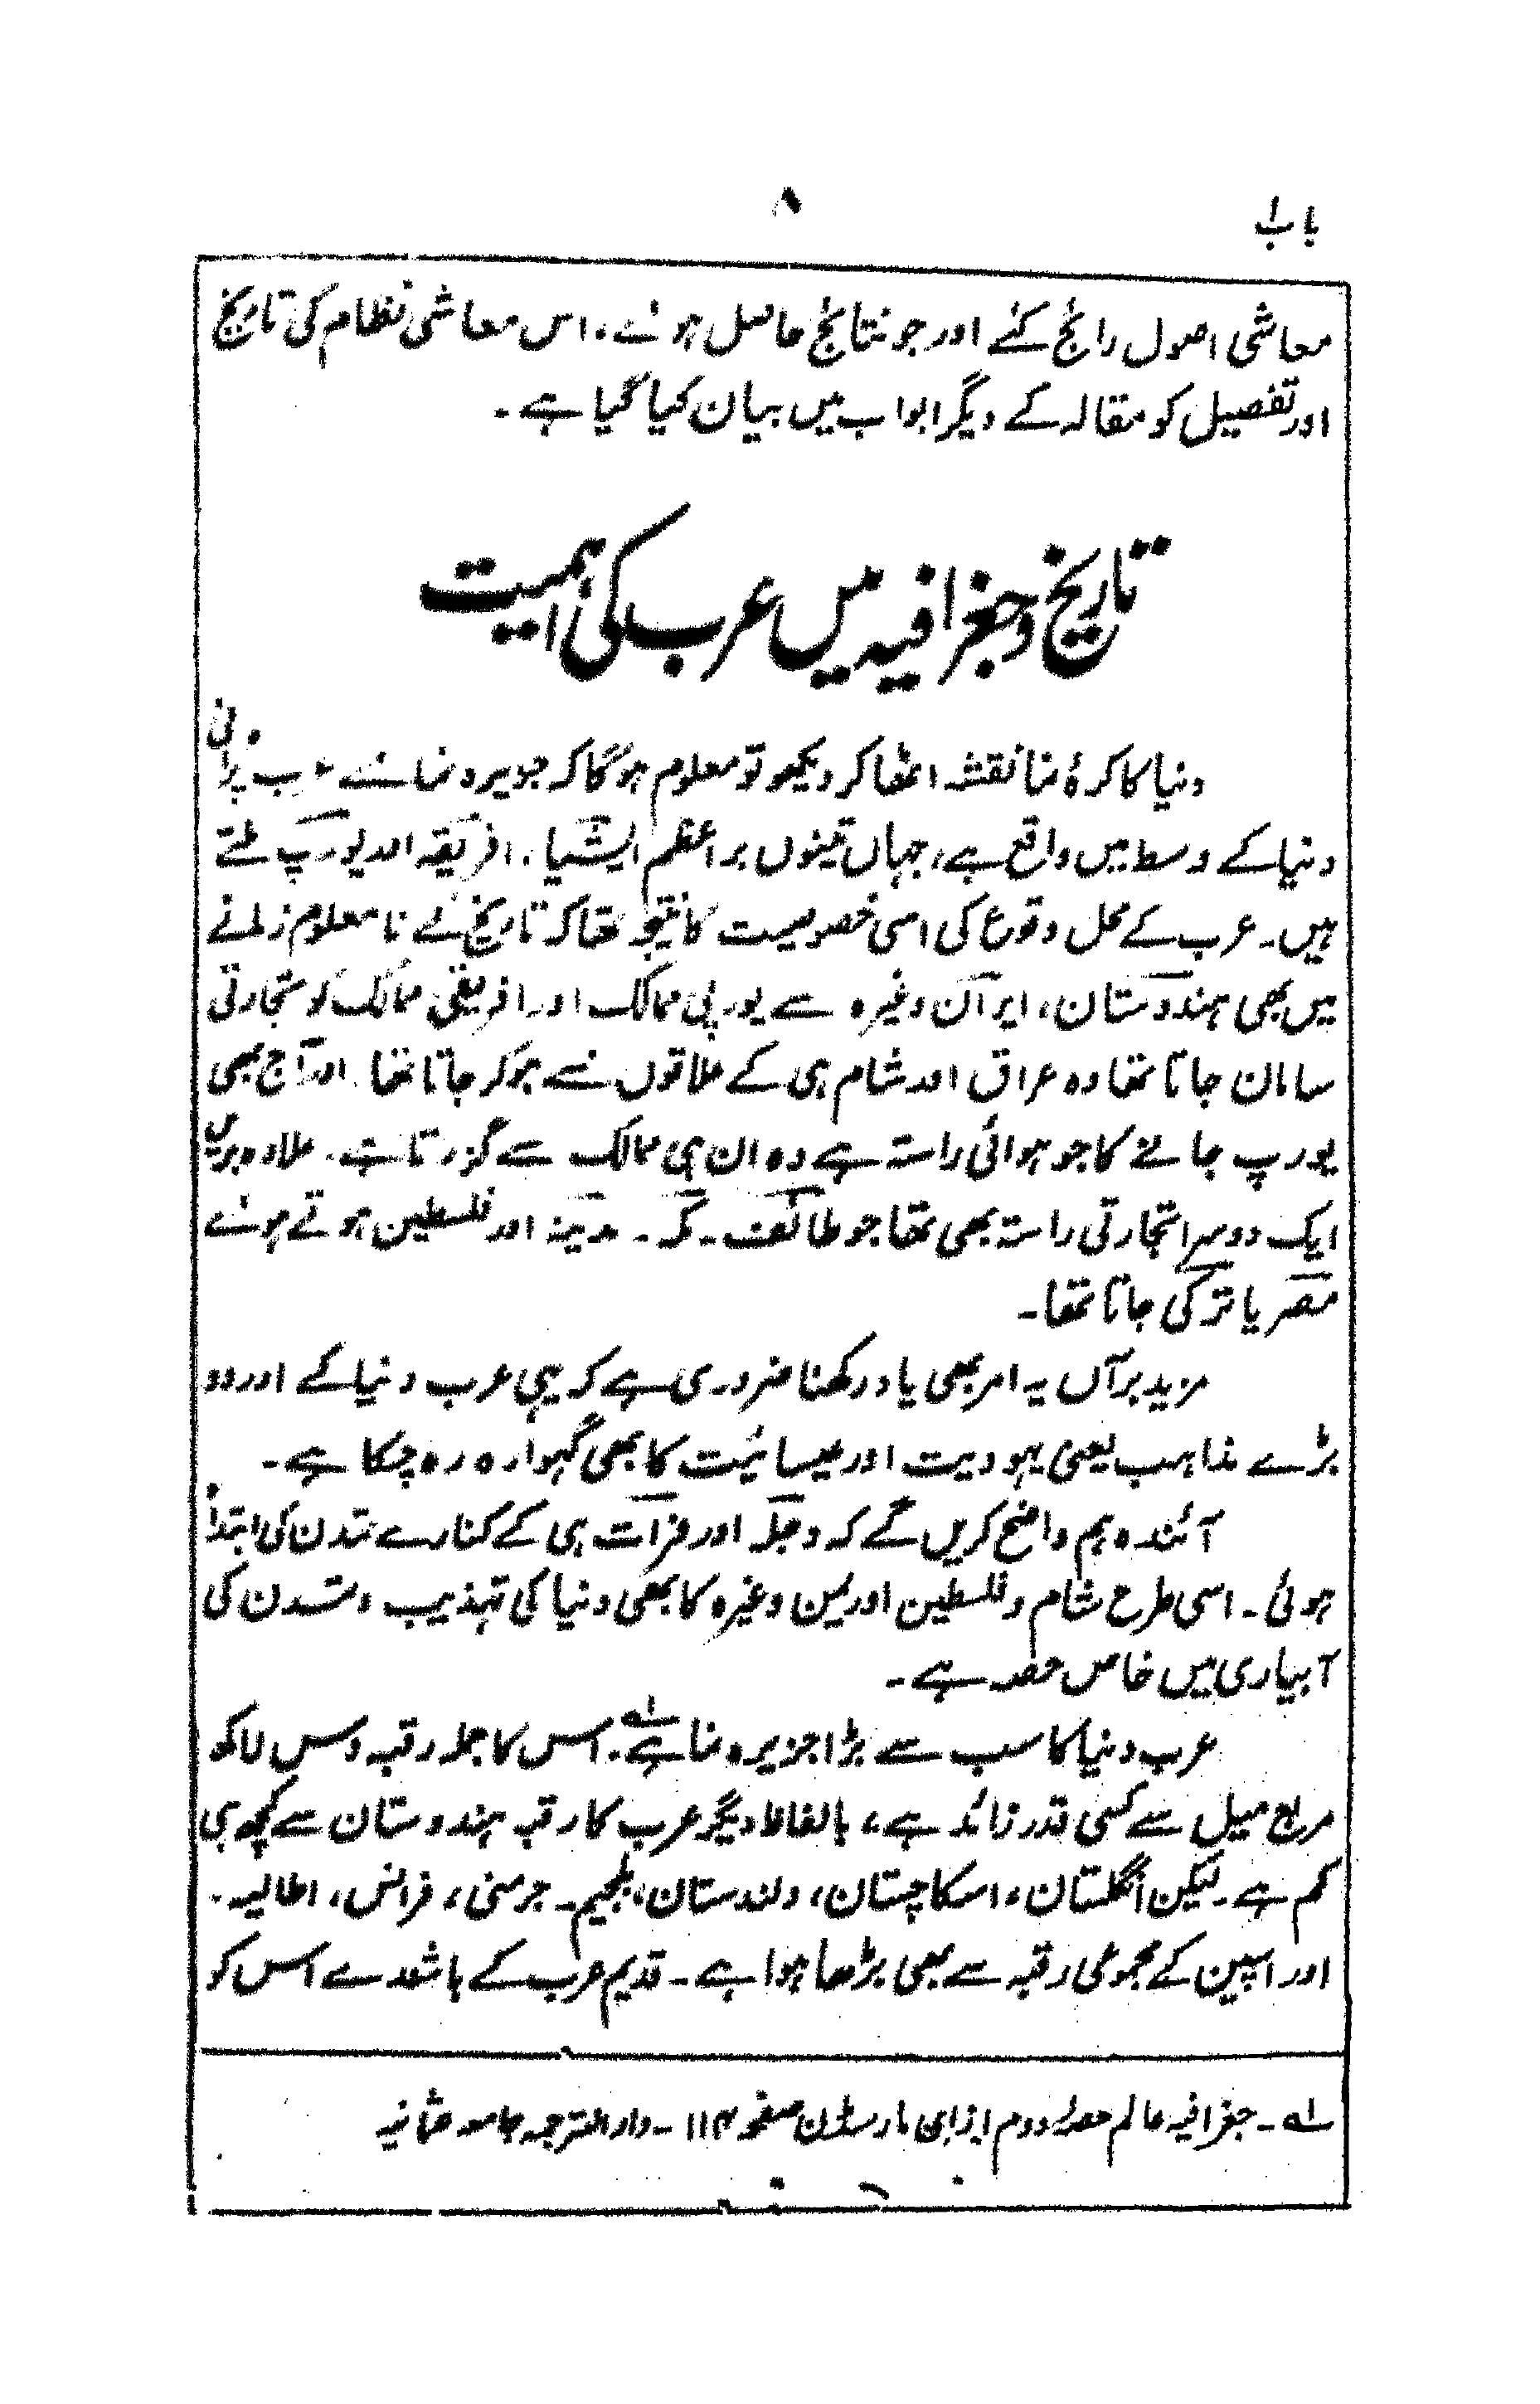 باب ۱
۸
معاشی اصول رائج کئے اور جو نتائج حاصل ہوئے ۔ اس معاشی نظام کی تاریخ
اور تفصیل کو مقالہ کے دیگر ابواب میں بیان کیا گیا ہے ۔
تاریخ و جغرافیہ میں عرب کی اہمیت
دنیا کا کرۂ نما نقشہ اٹھا کر دیکھو تو معلوم ہوگا کہ جزیرہ نمائے عرب پرانی
دنیا کے وسط میں واقع ہے، جہاں تینوں براعظم ایشیا، افریقہ اور یورپ ملتے
ہیں ۔ عرب کے محل وقوع کی اسی خصوصیت کا نتیجہ تھا کہ تاریخ کے نامعلوم زمانے
میں بھی ہندوستان، ایران وغیرہ سے یورپی ممالک اور افریقی ممالک کو تجارتی
سامان جاتا تھا وہ عراق اور شام ہی کے علاقوں سے ہو کر جاتا تھا اور آج بھی
یورپ جانے کا جو ہوائی راستہ ہے وہ ان ہی ممالک سے گزرتا ہے ۔ علاوہ بریں
ایک دوسرا تجارتی راستہ بھی تھا جو طائف ۔ مکہ ۔ مدینہ اور فلسطین ہوتے ہوئے
مصر یا ترکی جاتا تھا ۔
مزید برآں یہ امر بھی یاد رکھنا ضروری ہے کہ یہی عرب دنیا کے اور دو
بڑے مذاہب یعنی یہودیت اور عیسائیت کا بھی گہوارہ رہ چکا ہے ۔
آئندہ ہم واضح کریں گے کہ دجلہ اور فرات ہی کے کنارے تمدن کی ابتدا
ہوئی ۔ اسی طرح شام و فلسطین اور یمن وغیرہ کا بھی دنیا کی تہذیب و تمدن کی
آبیاری میں خاص حصہ ہے ۔
عرب دنیا کا سب سے بڑا جزیرہ نما ہے ۔ لہ اس کا جملہ رقبہ دس لاکھ
مربع میل سے کسی قدر زائد ہے، بالفاظ دیگر عرب کا رقبہ ہندوستان سے کچھ ہی
کم ہے ۔ لیکن انگلستان، اسکاچستان، ولندستان، بلجیم ۔ جرمنی، فرانس، اطالیہ ۔
اور اسپین کے مجموعی رقبہ سے بھی بڑھا ہوا ہے ۔ قدیم عرب کے باشندے اس کو
لہ ۔ جغرافیہ عالم حصۂ دوم از ای مارسڈن صفحہ ۱۱۴ ۔ دار الترجمہ جامعہ عثمانیہ